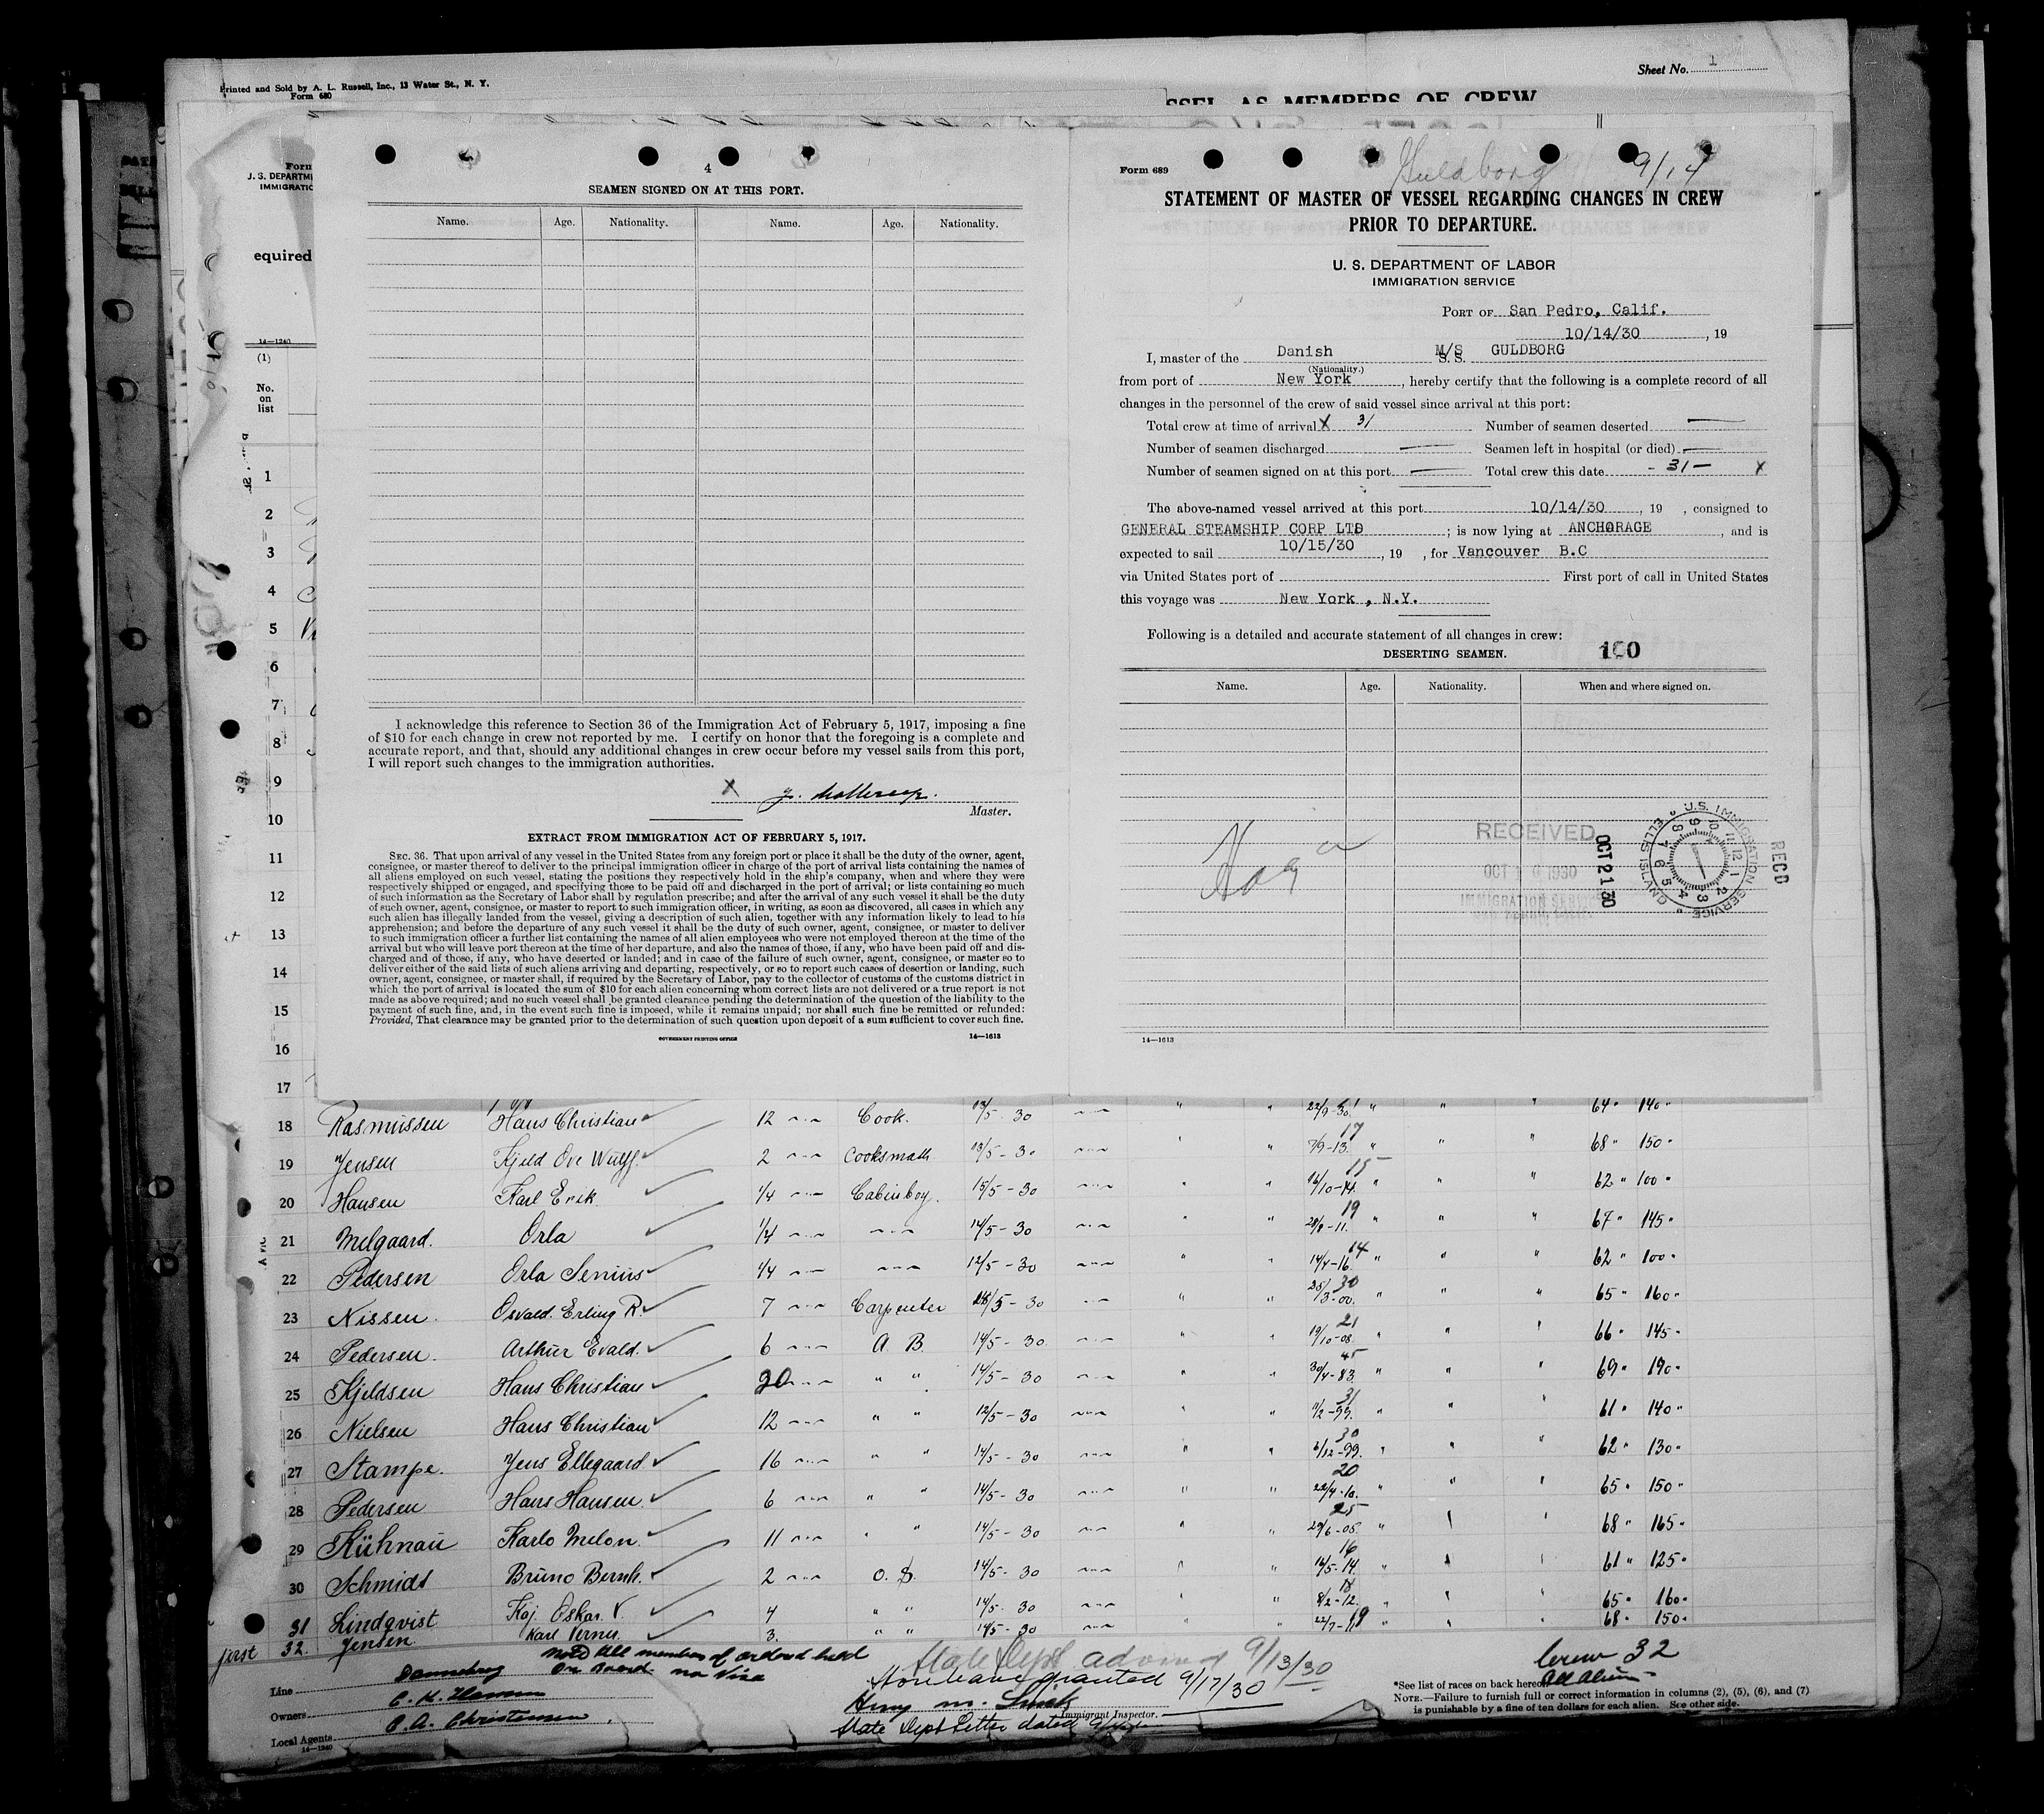 Printed and Sold by A. L. Russell, Inc., 13 Water St., N. Y.
Form 680
Sheet No. 1
SSEL AS MEMBERS OF CREW
Form
U. S. DEPARTM
IMMIGRATIO
equired
14—1240
(1)
No.
on
list
1
2
3
4
5
6
7
8
9
10
11
12
13
14
15
16
17
4
SEAMEN SIGNED ON AT THIS PORT.
Name. Age. Nationality. Name. Age. Nationality.
I acknowledge this reference to Section 36 of the Immigration Act of February 5, 1917, imposing a fine
of $10 for each change in crew not reported by me. I certify on honor that the foregoing is a complete and
accurate report, and that, should any additional changes in crew occur before my vessel sails from this port,
I will report such changes to the immigration authorities.
X
Master.
EXTRACT FROM IMMIGRATION ACT OF FEBRUARY 5, 1917.
SEC. 36. That upon arrival of any vessel in the United States from any foreign port or place it shall be the duty of the owner, agent,
consignee, or master thereof to deliver to the principal immigration officer in charge of the port of arrival lists containing the names of
all aliens employed on such vessel, stating the positions they respectively hold in the ship's company, when and where they were
respectively shipped or engaged, and specifying those to be paid off and discharged in the port of arrival; or lists containing so much
of such information as the Secretary of Labor shall by regulation prescribe; and after the arrival of any such vessel it shall be the duty
of such owner, agent, consignee, or master to report to such immigration officer, in writing, as soon as discovered, all cases in which any
such alien has illegally landed from the vessel, giving a description of such alien, together with any information likely to lead to his
apprehension; and before the departure of any such vessel it shall be the duty of such owner, agent, consignee, or master to deliver
to such immigration officer a further list containing the names of all alien employees who were not employed thereon at the time of the
arrival but who will leave port thereon at the time of her departure, and also the names of those, if any, who have been paid off and dis-
charged and of those, if any, who have deserted or landed; and in case of the failure of such owner, agent, consignee, or master so to
deliver either of the said lists of such aliens arriving and departing, respectively, or so to report such cases of desertion or landing, such
owner, agent, consignee, or master shall, if required by the Secretary of Labor, pay to the collector of customs of the customs district in
which the port of arrival is located the sum of $10 for each alien concerning whom correct lists are not delivered or a true report is not
made as above required; and no such vessel shall be granted clearance pending the determination of the question of the liability to the
payment of such fine, and, in the event such fine is imposed, while it remains unpaid; nor shall such fine be remitted or refunded:
Provided, That clearance may be granted prior to the determination of such question upon deposit of a sum sufficient to cover such fine.
GOVERNMENT PRINTING OFFICE 14—1613
Form 689
Guldborg 9/14
STATEMENT OF MASTER OF VESSEL REGARDING CHANGES IN CREW
PRIOR TO DEPARTURE.
U. S. DEPARTMENT OF LABOR
IMMIGRATION SERVICE
PORT OF San Pedro, Calif.
10/14/30, 19
I, master of the Danish M/S S.S. GULDBORG
(Nationality.)
from port of New York, hereby certify that the following is a complete record of all
changes in the personnel of the crew of said vessel since arrival at this port:
Total crew at time of arrival X 31 Number of seamen deserted —
Number of seamen discharged — Seamen left in hospital (or died) —
Number of seamen signed on at this port — Total crew this date - 31 — X
The above-named vessel arrived at this port 10/14/30, 19 , consigned to
GENERAL STEAMSHIP CORP LTD; is now lying at ANCHORAGE, and is
expected to sail 10/15/30, 19 , for Vancouver B.C
via United States port of First port of call in United States
this voyage was New York , N.Y.
Following is a detailed and accurate statement of all changes in crew:
DESERTING SEAMEN. 100
Name. Age. Nationality. When and where signed on.
RECEIVED
IMMIGRATION SERVICE
OCT 21 30
U.S. IMMIGRATION SERVICE ELLIS ISLAND
RECD
14—1613
18 Rasmussen Hans Christian 12 Cook. 13/5 30 22/9-30 64 140
19 Jensen Kjeld Ove Wulff. 2 Cooksmath 13/5-30 17 7/9-13 68 150
20 Hansen Karl Erik 1/4 Cabinboy. 15/5-30 15 16/10-14 62 100
21 Melgaard. Orla 1/4 14/5-30 19 28/8-11. 67 145
22 Pedersen Orla Senius 1/4 12/5-30 14 14/4-16 62 100
23 Nissen. Osvald. Erling R. 7 Carpenter 28/5-30 30 25/3-00. 65 160
24 Pedersen. Arthur Evald. 6 A B. 14/5-30. 21 19/10-08. 66 145
25 Kjeldsen Hans Christian 20 " " 14/5-30 45 30/4-83. 69 190
26 Nielsen Hans Christian 12 " " 12/5-30 31 11/2-99. 61 140
27 Stampe. Jens Ellegaard 16 " " 14/5-30 30 2/12-99. 62 130
28 Pedersen Hans Hansen. 6 " " 14/5-30 20 22/4-10. 65 150
29 Kühnau Karlo Melon. 11 " " 14/5-30 25 29/6-05. 68 165
30 Schmidt Bruno Bernh. 2 O. S. 14/5-30 16 14/5-14. 61 125
31 Lindqvist Kaj. Oskar. V. 4 " " 14/5-30 18 8/2-12. 65 160
first 32. Jensen Karl Verner 3. " " 14/5-30 22/7-19 68 150
Note All members of ordered held
on board no visa
State Dept advised 9/13/30
Shore leave granted 9/17/30
Crew 32
All Aliens
Line Dannebrog
Owners C. K. Hansen
Local Agents C. A. Christensen
14—1240
Immigrant Inspector.
State Dept Letter dated
*See list of races on back hereof.
NOTE.—Failure to furnish full or correct information in columns (2), (5), (6), and (7)
is punishable by a fine of ten dollars for each alien. See other side.